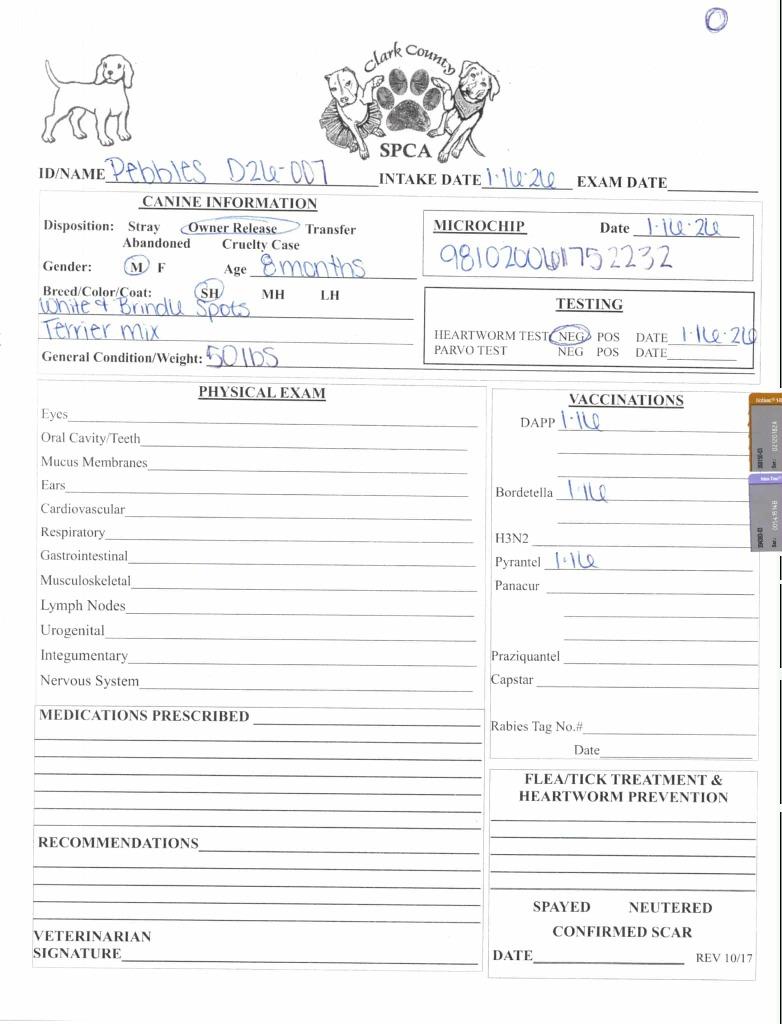 Clark County
SPCA
ID/NAME Pebbles D26-007 INTAKE DATE 1·16·26 EXAM DATE
CANINE INFORMATION
Disposition: Stray Owner Release Transfer
Abandoned Cruelty Case
Gender: M F Age 8 months
Breed/Color/Coat: SH MH LH
White & Brindle Spots
Terrier mix
General Condition/Weight: 50 lbs
MICROCHIP Date 1·16·26
981020061752232
TESTING
HEARTWORM TEST NEG POS DATE 1·16·26
PARVO TEST NEG POS DATE
PHYSICAL EXAM
Eyes
Oral Cavity/Teeth
Mucus Membranes
Ears
Cardiovascular
Respiratory
Gastrointestinal
Musculoskeletal
Lymph Nodes
Urogenital
Integumentary
Nervous System
VACCINATIONS
DAPP 1·16
Bordetella 1·16
H3N2
Pyrantel 1·16
Panacur
Praziquantel
Capstar
Rabies Tag No.#
Date
MEDICATIONS PRESCRIBED
RECOMMENDATIONS
VETERINARIAN
SIGNATURE
FLEA/TICK TREATMENT &
HEARTWORM PREVENTION
SPAYED NEUTERED
CONFIRMED SCAR
DATE REV 10/17